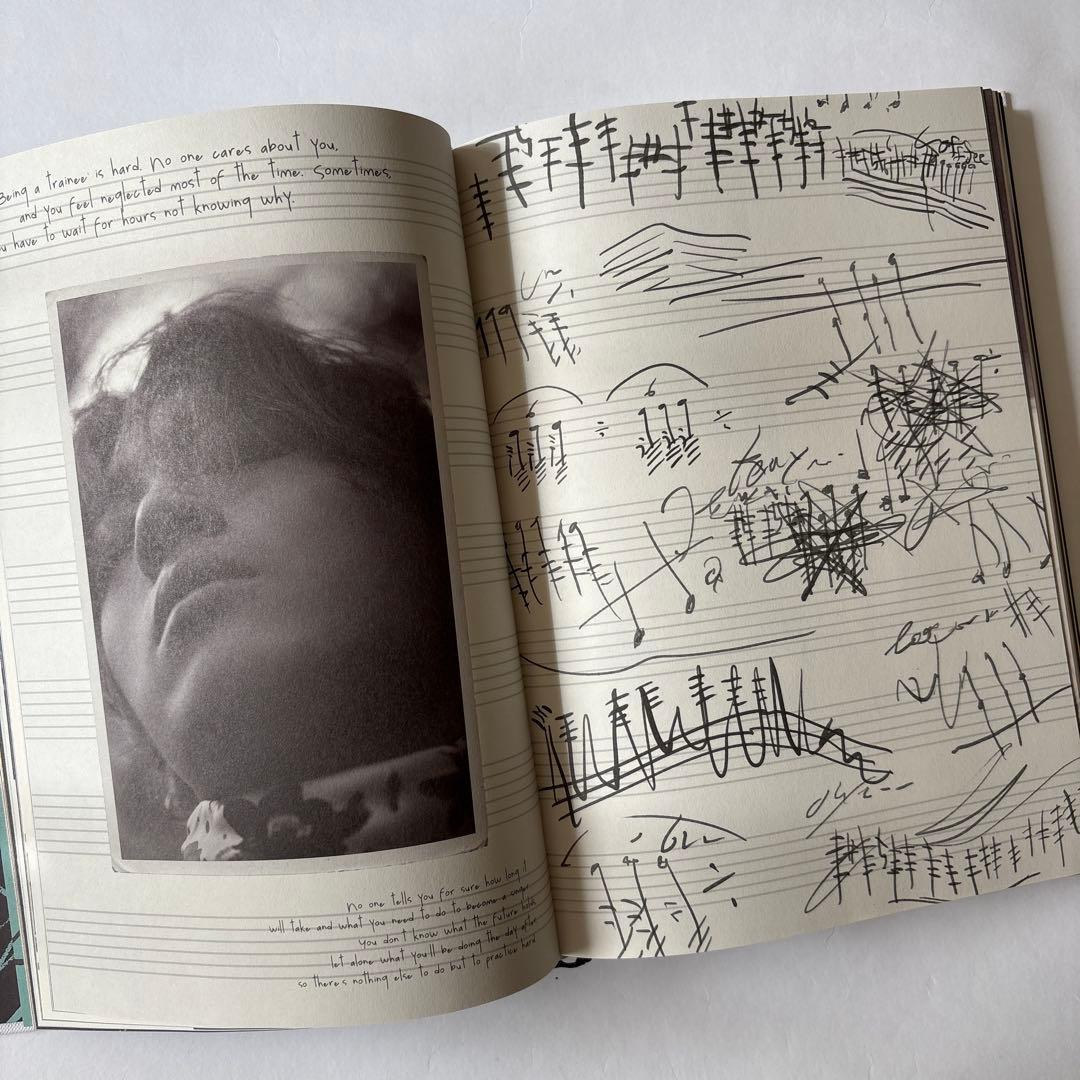 Being a trainee is hard. No one cares about you,
and you feel neglected most of the time. Sometimes,
have to wait for hours not knowing why.
No one tells you for sure how long it
will take and what you need to do to become a singer
you don't know what the future holds
let alone what you'll be doing the day after
so there's nothing else to do but to practice hard